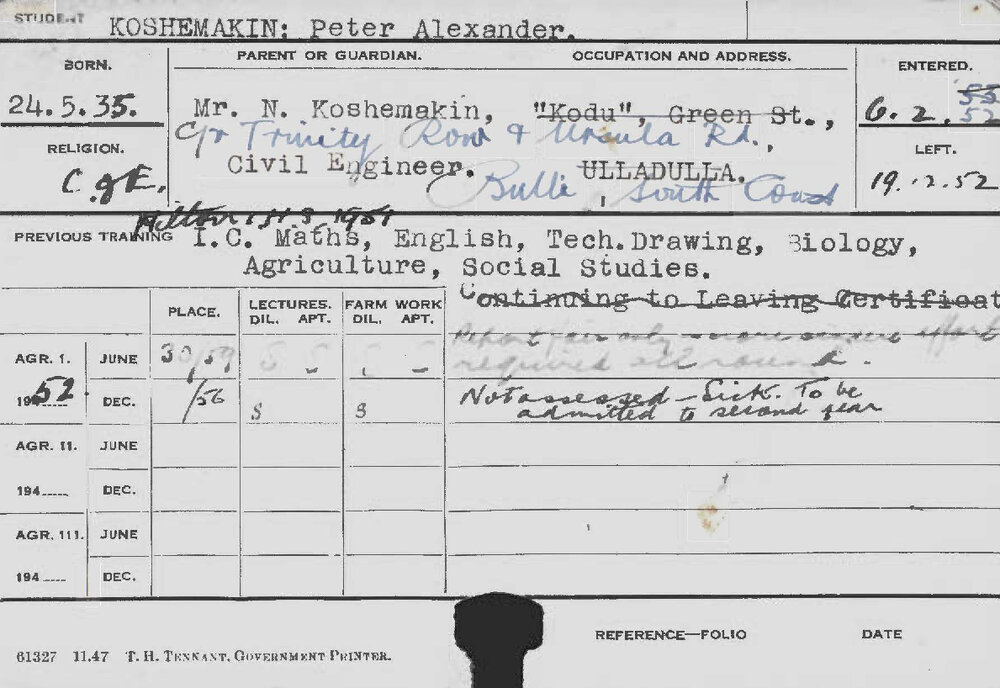 STUDENT KOSHEMAKIN: Peter Alexander.
BORN. PARENT OR GUARDIAN. OCCUPATION AND ADDRESS. ENTERED.
24.5.35. Mr. N. Koshemakin, "Kodu", Green St., 6.2.52
Cnr Trinity Row & Ursula Rd.,
RELIGION. Civil Engineer. ULLADULLA. LEFT.
C of E. Bulli, South Coast 19.12.52
H.S. 1951
PREVIOUS TRAINING I.C. Maths, English, Tech.Drawing, Biology,
Agriculture, Social Studies.
Continuing to Leaving Certificat
PLACE. LECTURES. FARM WORK
DIL. APT. DIL. APT.
Report fair only - more sincere effort
AGR. I. JUNE 30/59 required all round.
1952. DEC. /56 S S Not assessed - Sick. To be
admitted to second year
AGR. II. JUNE
194 DEC.
AGR. III. JUNE
194 DEC.
REFERENCE—FOLIO DATE
61327 11.47 T. H. TENNANT, GOVERNMENT PRINTER.